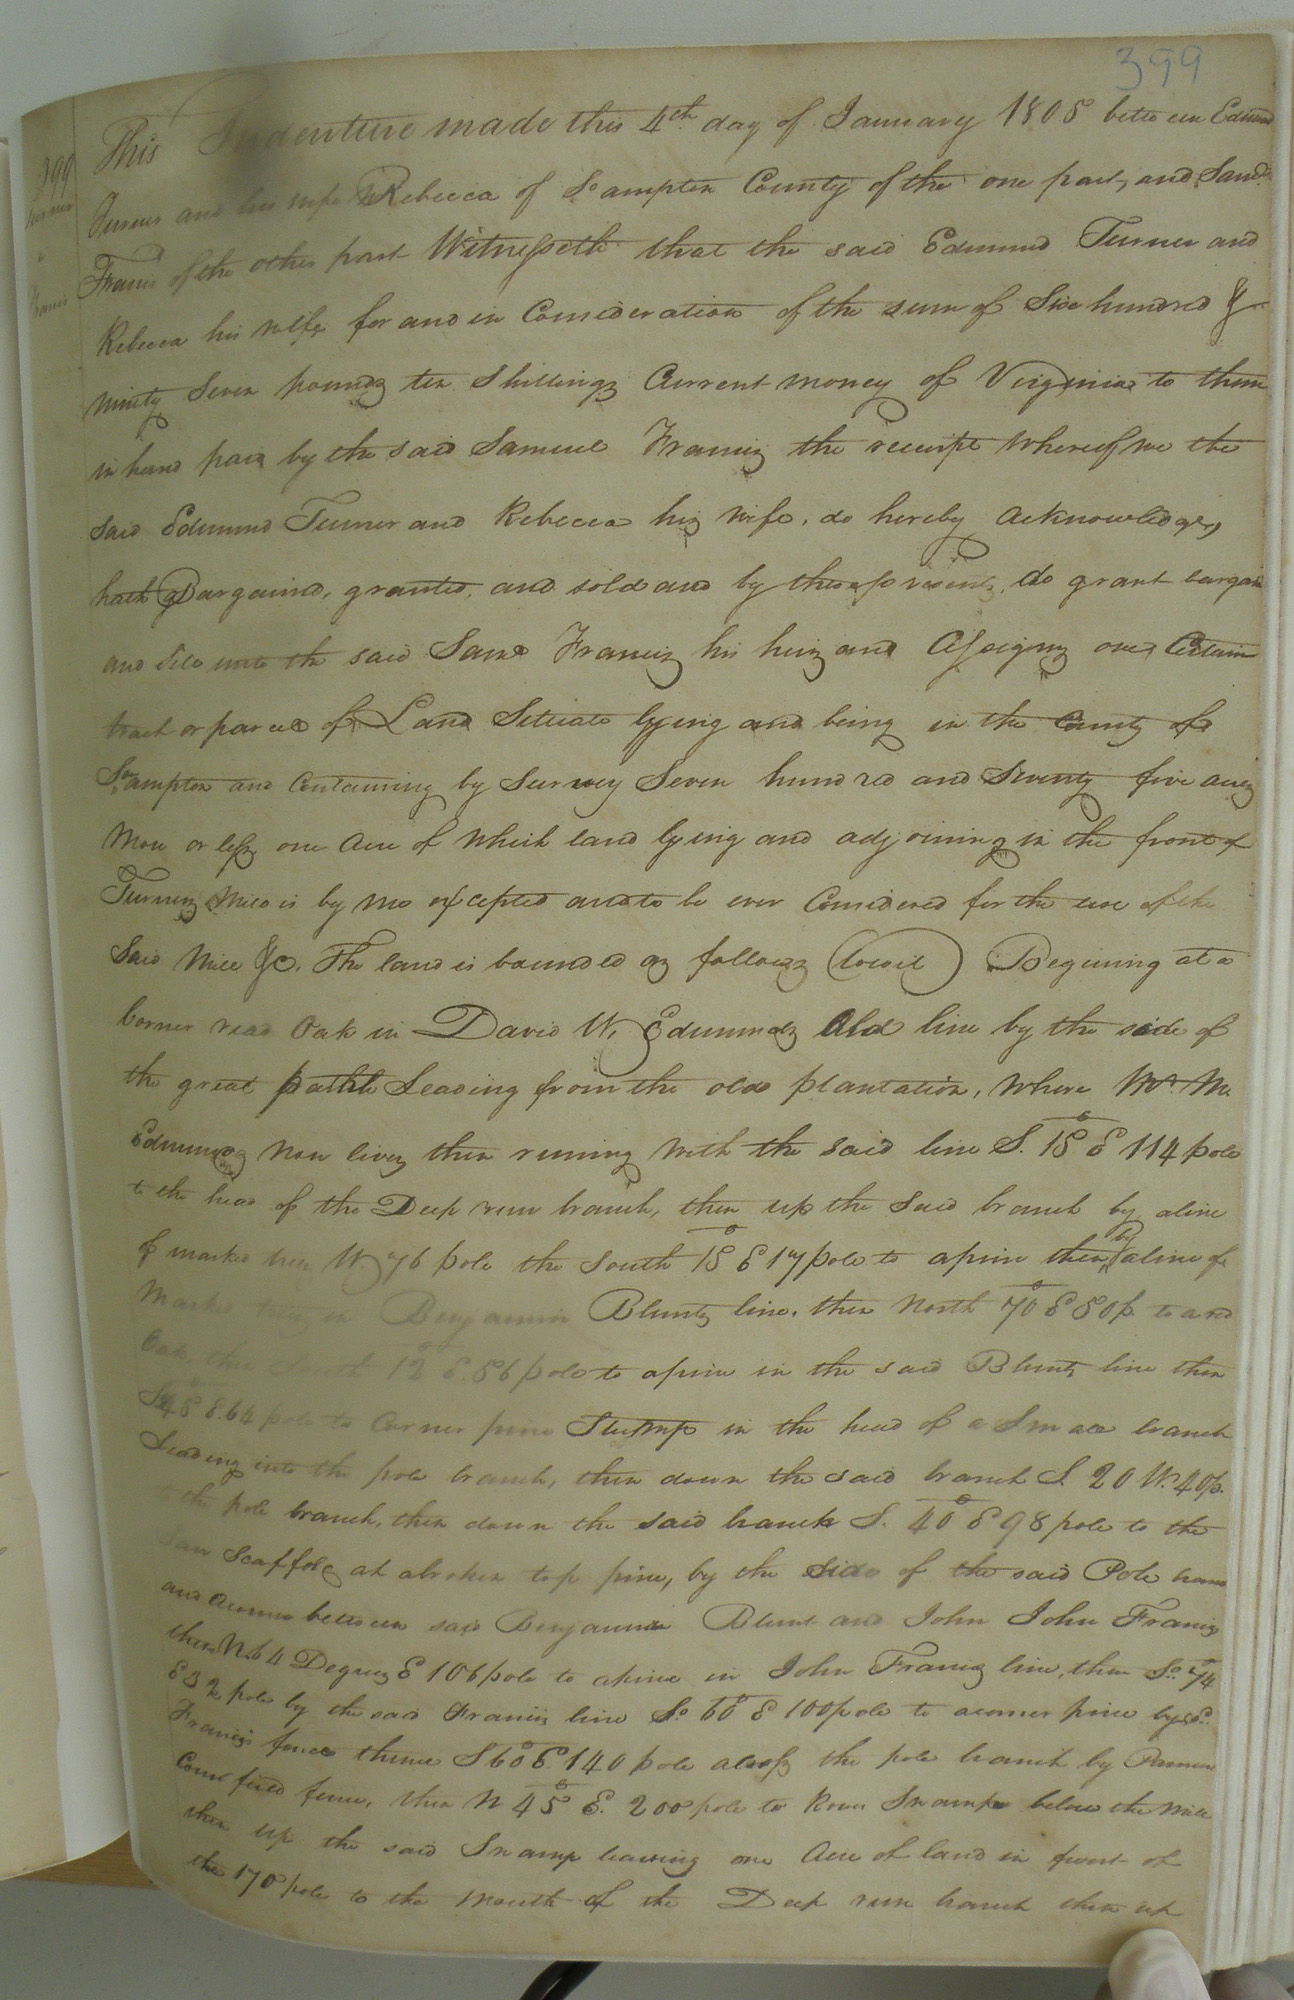 399
This Indenture made this 4th day of January 1808 between Edmund
399
Turner
v
Francis
Turner and his wife Rebecca of So.ampton County of the one part, and Saml.
Francis of the other part Witnesseth that the said Edmund Turner and
Rebecca his wife for and in Consideration of the sum of Six hundred &
ninety Seven pounds ten Shillings Current money of Virginia to them
in hand paid by the said Samuel Francis the receipt whereof we the
said Edmund Turner and Rebecca his wife, do hereby acknowledge,
hath Bargained, granted, and sold and by these presents, do grant bargain
and Sell unto the said Saml Francis his heirs and Assigns one Certain
tract or parcel of Land Situate lying and being in the County of
So.ampton and Containing by Survey Seven hundred and Seventy five acres
More or less one Acre of Which land lying and adjoining in the front of
Turners Mill is by me excepted and to be ever Considered for the use of the
Said Mill &C. The land is bounded as follows (towit) Begining at a
Corner read Oak in David W. Edmunds Old line by the side of
the great path Leading from the old plantation, Where Wm. M.
Edmunds Now lives then runing With the said line S. 15° E 114 pole
to the head of the Deep run branch, then up the Said branch by a line
of marked trees W 76 pole the South 15 E 17 pole to a pine then by a line of
Marked trees in Benjamin Blunts line, then North 70 E 80 p. to a red
Oak, then South 12° E. 56 pole to a pine in the said Blunts line then
S 45 E. 64 pole to Corner pine Stump in the head of a Small branch
Leading into the pole branch, then down the said branch S. 20 W. 40 p.
to the pole branch, then down the said branch S. 40° E 98 pole to the
Saw Scaffold at a broken top pine, by the Side of the said Pole branch
and a Corner between said Benjamin Blunt and John John Francis
then N. 64 Degrees E 106 pole to a pine in John Francis line, then So. 74
E 32 pole by the said Francis line So 60° E 100 pole to a corner pine by sd.
Francis fence thence S 60° E. 140 pole across the pole branch by
Corn field fence, then N 45° E. 200 pole to Swamp below the Mill
then up the said Swamp leaving one Acre of land in front of
the 170 pole to the Mouth of the Deep run branch then up